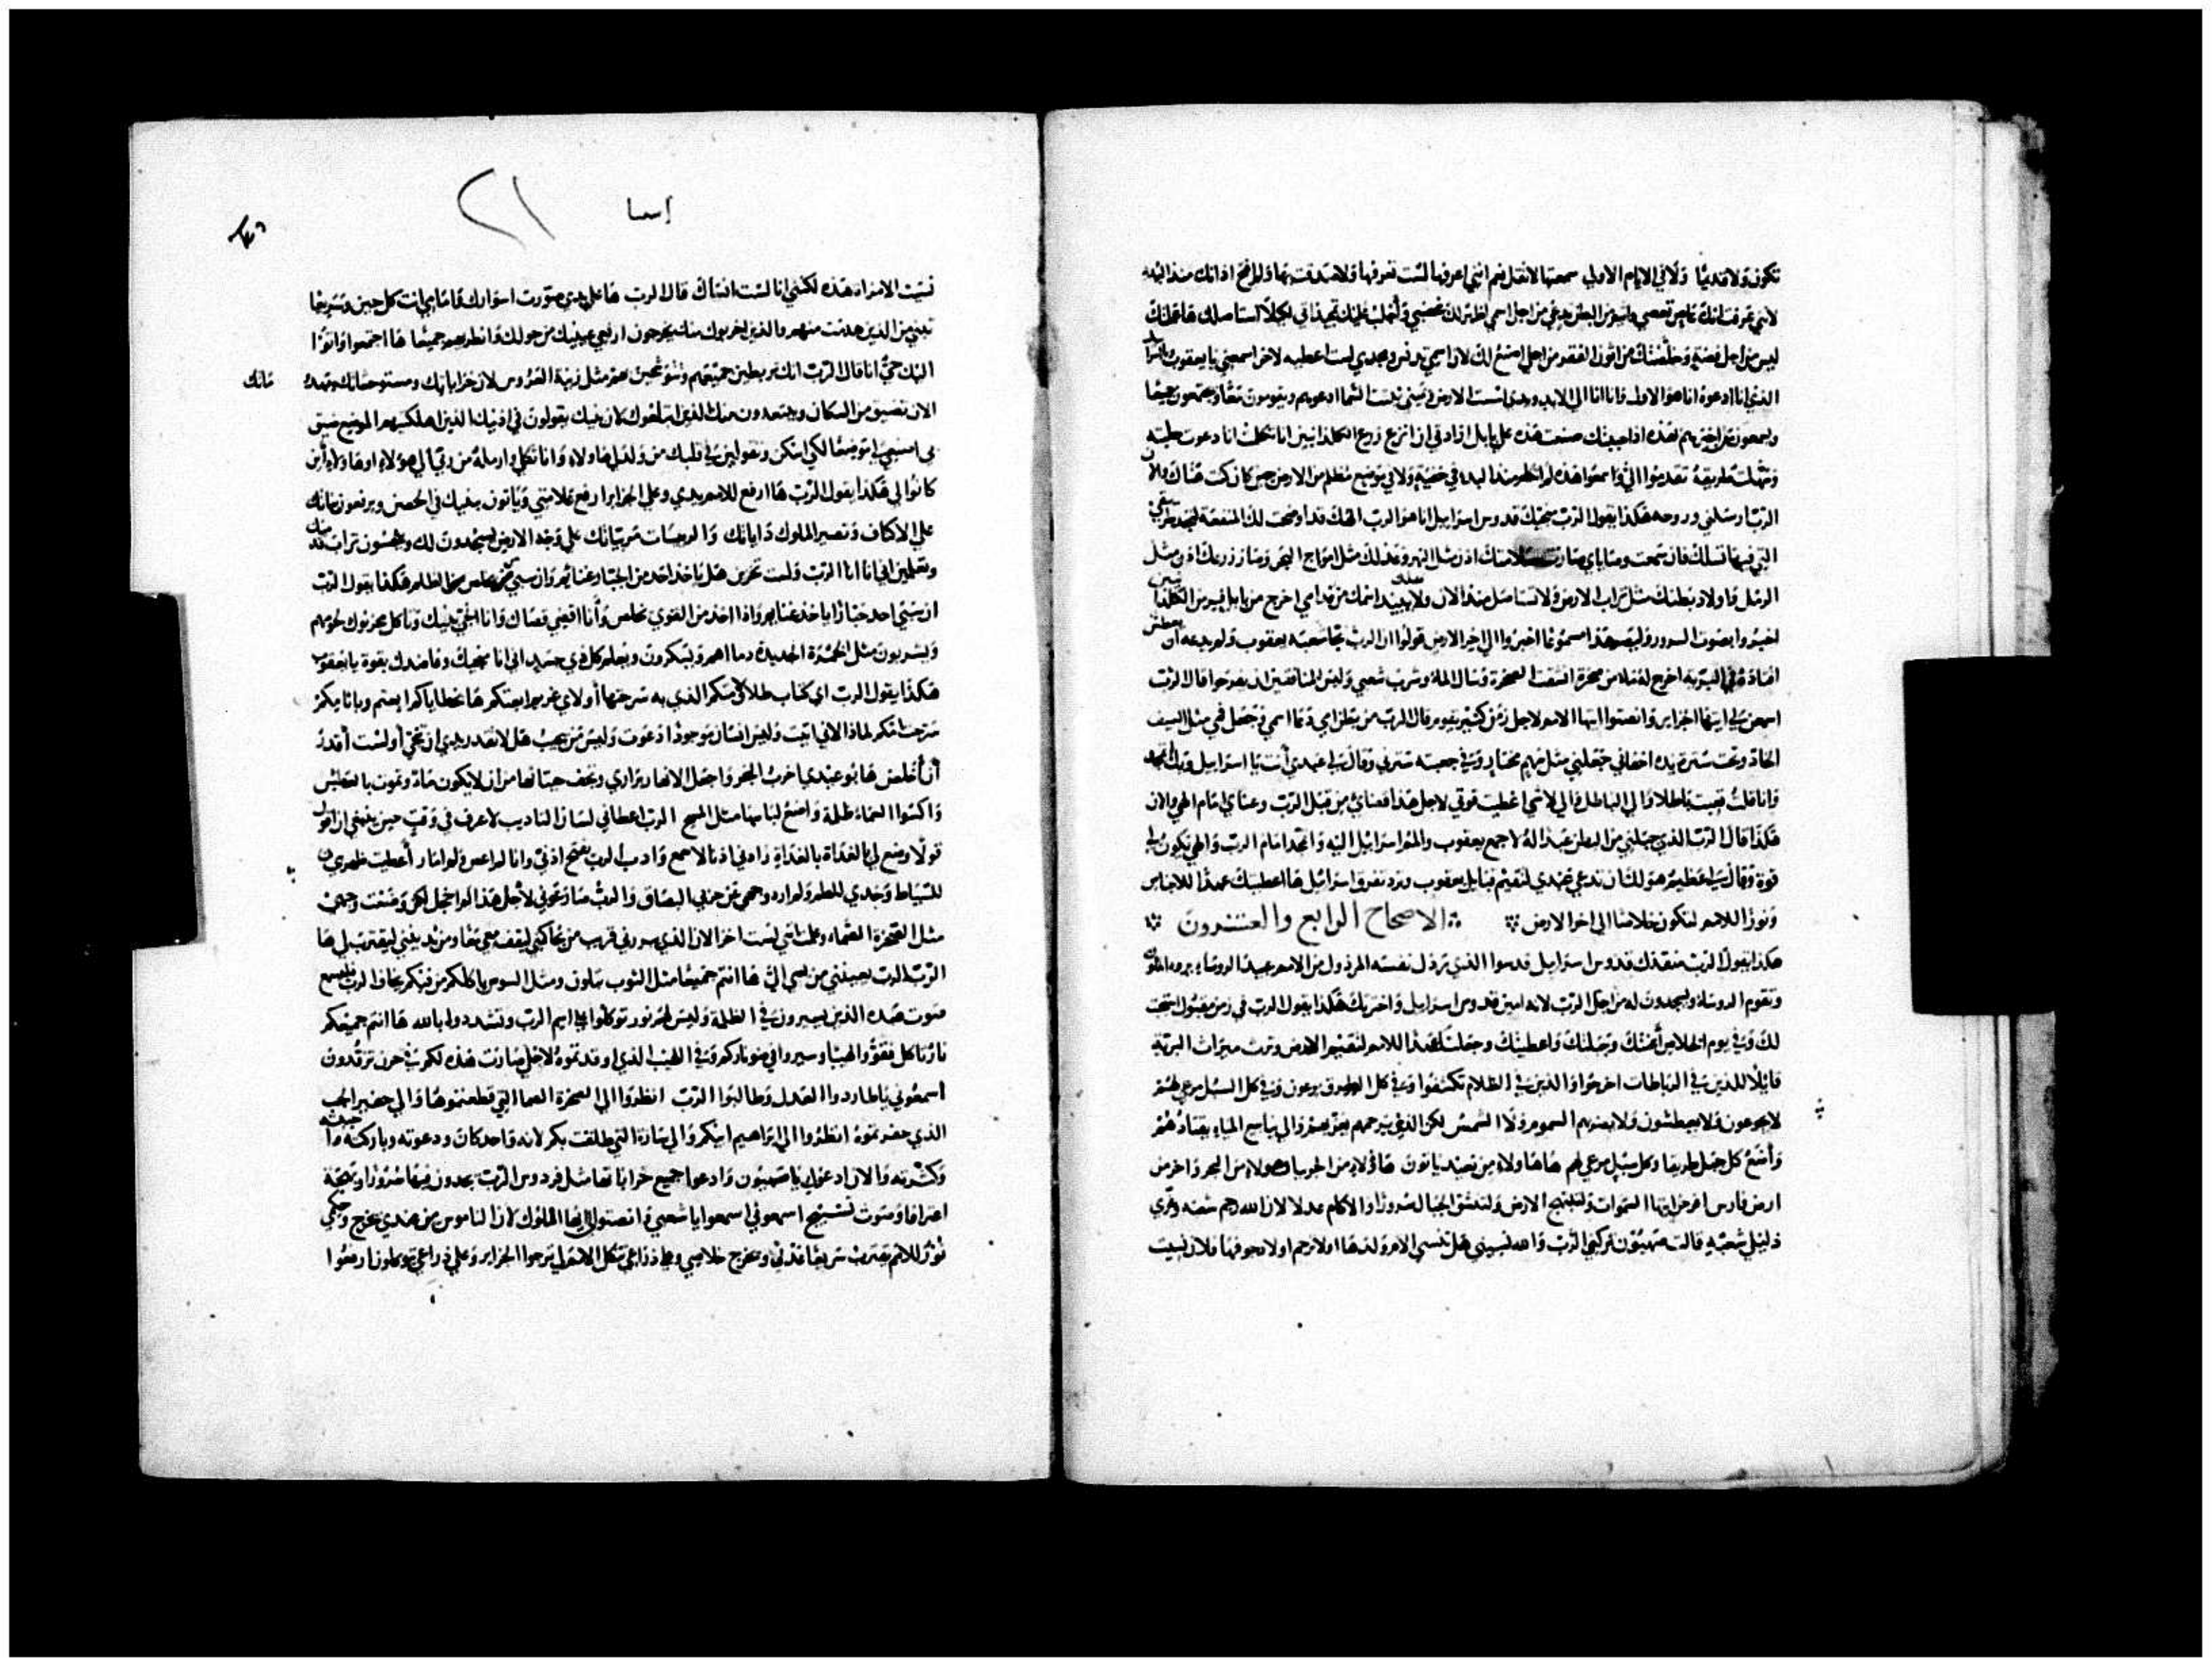 تكون ولا قديمًا ولا في الايام الاولي سمعتها لا تقل نعم انني اعرفها لست تعرفها ولا صدقت بها ولم افتح اذانك منذ البدء
لانني عرفت انك عاصي تعصي من البطن تدعي من اجل اسمي اظهر لك غضبي
ليس من اجل فضة وخلصتك من اتون الفقر من اجلي اصنع لك لان اسمي تدنس ومجدي لست اعطيه لاخر اسمعني يا يعقوب
الذي انا ادعوه انا هو الاول وانا الي الابد ويدي اسست الارض ويميني ثبتت السما ادعوهم ويقومون معًا ويجتمعون جميعًا
ويسمعون من اخبرهم بهذه اذ احبك صنعت هذه علي بابل ارادتي ان انزع زرع الكلدانيين انا تكلمت انا دعوت جلبته
وسهلت طريقه تقدموا الي واسمعوا هذه لم اتكلم منذ البدء في خفية ولا في موضع مظلم من الارض حين كانت كنت هناك والان
الرب ارسلني وروحه هكذا يقول الرب منجيك قدوس اسراييل انا هو الرب الهك قد اوضحت لك المنفعة لتجد
التي فيها تسلك فان سمعت وصاياي صارت سلامتك اذن مثل النهر وعدلك مثل امواج البحر وصار زرعك اذن مثل
الرمل واولاد بطنك مثل تراب الارض ولا تستاصل منذ الان ولا يبيد اسمك من قدامي اخرج من بابل
اخبروا بصوت السرور وليصر هذا مسموعًا اخبروا الي اخر الارض قولوا ان الرب نجا عبده يعقوب
اقتادهم في البرية اخرج لهم ما من صخرة انشقت الصخرة وسال الما وشرب شعبي وليس للمنافقين ان يفرحوا قال الرب
اسمعن لي ايتها الجزاير وانصتوا ايها الامم لاجل زمن كثير يقوم قال الرب من بطن امي دعا اسمي وجعل فمي مثل السيف
الحاد وتحت سترة يده اخفاني جعلني مثل سهم مختار وفي جعبته سترني وقال لي عبدي انت يا اسراييل وبك اتمجد
وانا قلت تعبت باطلا والي الباطل والي لاشي اعطيت قوتي لاجل هذا قضاي من قبل الرب وعناي امام الهي والان
هكذا قال الرب الذي جبلني من البطن عبدا له لاجمع يعقوب والي اسراييل اليه واتمجد امام الرب والهي يكون لي
قوة وقال لي عظيم هو لك ان تدعي عبدي لتقيم قبايل يعقوب وترد تفرق اسراييل ها اعطيتك عهدا للاجناس
ونورًا للامم لتكون خلاصًا الي اخر الارض الاصحاح الرابع والعشرون
هكذا يقول الرب منقذك قدوس اسراييل قدسوا الذي ترذل نفسه المرذول من الامم عبيد الروساء
وتقوم الروساء ويسجدون له من اجل الرب لانه امين قدوس اسراييل واخترتك هكذا يقول الرب في زمن مقبول استجبت
لك وفي يوم الخلاص اعنتك وجبلتك واعطيتك وجعلتك عهدًا للامم لتقيم الارض وترث ميراث البرية
قايلا للذين في الرباطات اخرجوا والذين في الظلام تكشفوا وفي كل الطرق يرعون وفي كل السبل مرعي لهم
لا يجوعون ولا يعطشون ولا يضربهم السموم ولا الشمس لكن الذي يترحمهم يعزيهم والي ينابيع المياه يقتادهم
واضع كل جبل طريقا وكل سبيل مرعي لهم هاهاولاء من بعيد ياتون هاولاء من الجربيا وهولاء من البحر واخر من
ارض فارس افرحن ايتها السموات ولتبتهج الارض ولتندفق الجبال سرورًا والاكام عدلا لان الله رحم شعبه وعزي
ذليلي شعبه قالت صهيون تركني الرب والله نسيني هل تنسي الام ولدها او لا ترحم اولاد جوفها فلان نسيت
اسا ٢١
نسيت الامراة هذه لكنني انا لست انساك قال الرب ها علي يدي صورت اسوارك وامامي انت كل حين وسريعًا
تبنين من الذين هدمت منهم والذين اخربوك منك يخرجون ارفعي عينيك من حولك وانظريهم جميعًا ها اجتمعوا واتوا
اليك حي انا قال الرب انك تربطين جميعهم وتتوشحين بهم مثل زينة العروس لان خراباتك ومستوحشاتك
الان تضيق من السكان ويبتعدون منك الذين ابتلعوك لان بنيك يقولون في اذنيك الذين اهلكتهم الموضع ضيق
بي اصنعي لي موضعًا لكي اسكن وتقولين في قلبك من ولد لي هاولاء وانا ثكلي وارملة من ربا لي هولاء وهاولاء اين
كانوا لي هكذا يقول الرب ها ارفع للامم يدي وعلي الجزاير ارفع علامتي وياتون ببنيك في الحصن ويرفعون بناتك
علي الاكتاف وتصير الملوك داياتك والرييسات مربياتك علي وجه الارض يسجدون لك ويلحسون تراب
وتعلمين اني انا الرب ولست تخزين هل ياخذ احد من الجبار غنايم وان سبي يخلص من الظلم هكذا يقول الرب
ان سبي احد جبارًا ياخذ غنايم واذا اخذ من القوي يخلص وانا اقضي قضاك وانا انجي بنيك وياكل محزنوك لحومهم
ويشربون مثل الخمرة الجديدة دماهم ويسكرون ويعلم كل ذي جسد اني انا منجيك وعاضدك بقوة يا يعقوب
هكذا يقول الرب اي كتاب طلاق امكم الذي به سرحتها او لاي غريم ابعتكم ها بخطاياكم ابعتم وباثامكم
سرحت امكم لماذا لاني اتيت وليس انسان موجودًا دعوت وليس من يجيب هل لا تقدر يدي ان تنجي او لست اقدر
ان اخلص ها بوعيدي اخرب البحر واجعل الانهار براري وتجف حيتانها من ان لا يكون ماء وتموت بالعطش
واكسوا السماء ظلمة واضع لباسها مثل المسح الرب اعطاني لسان التاديب لاعرف في وقت حين ينبغي ان اقول
قولا وضع لي بالغداة بالغداة زادني اذنا لاسمع وادب الرب يفتح اذني وانا لم اعص ولم امار اعطيت ظهري
للسياط وخدي للطم ولم ارد وجهي عن خزي البصاق والرب صار عوني لاجل هذا لم اخجل لكن وضعت وجهي
مثل الصخرة الصماء وعلمت انني لست اخز لان الذي يبررني قريب من يحاكمني ليقف معي معًا ومن يدينني ليقترب لي ها
الرب الرب يعينني من يسي الي ها انتم جميعًا مثل الثوب تبلون ومثل السوس ياكلكم من فيكم يخاف الرب فليسمع
صوت عبده الذين يسيرون في الظلمة وليس لهم نور توكلوا علي اسم الرب وتشددوا بالله ها انتم جميعكم
نارًا كل تقووا لهيبًا وسيروا في ضو ناركم وفي اللهيب الذي اوقدتموه لاجلي صارت هذه لكم في حزن ترقدون
اسمعوني يا طاردوا العدل وطالبوا الرب انظروا الي الصخرة الصما التي قطعتموها والي حفير الجب
الذي حفرتموه انظروا الي ابراهيم ابيكم والي سارة التي طلقت بكم لانه واحد كان ودعوته وباركته
وكثرته والان ادعوك يا صهيون وادعوا جميع خراباتها مثل فردوس الرب يجدون فيها سرورًا وبهجة
اعترافا وصوت تسبيح اسمعوني اسمعوا يا شعبي وانصتوا لي ايها الملوك لان الناموس من عندي يخرج وحكمي
نور للامم يقترب سريعًا عدلي ويخرج خلاصي وعلي ذراعي تتكل الامم لي ترجوا الجزاير وعلي ذراعي يتوكلون ارفعوا